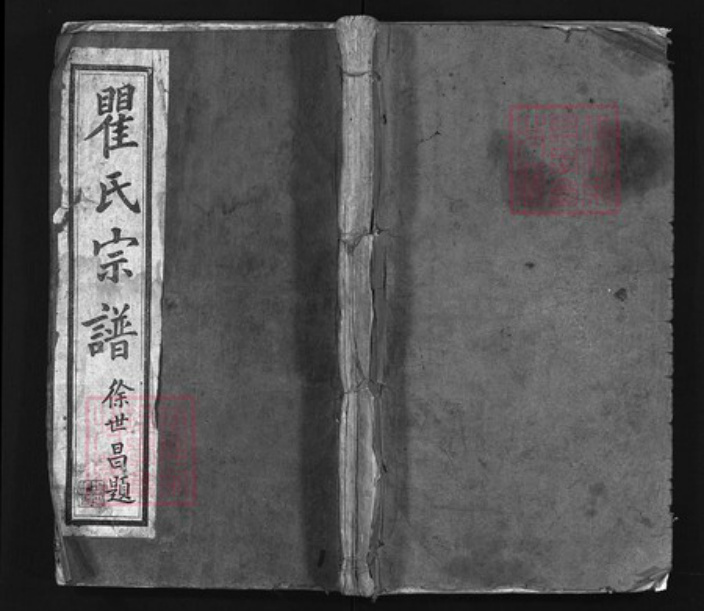 瞿氏宗譜
徐世昌題